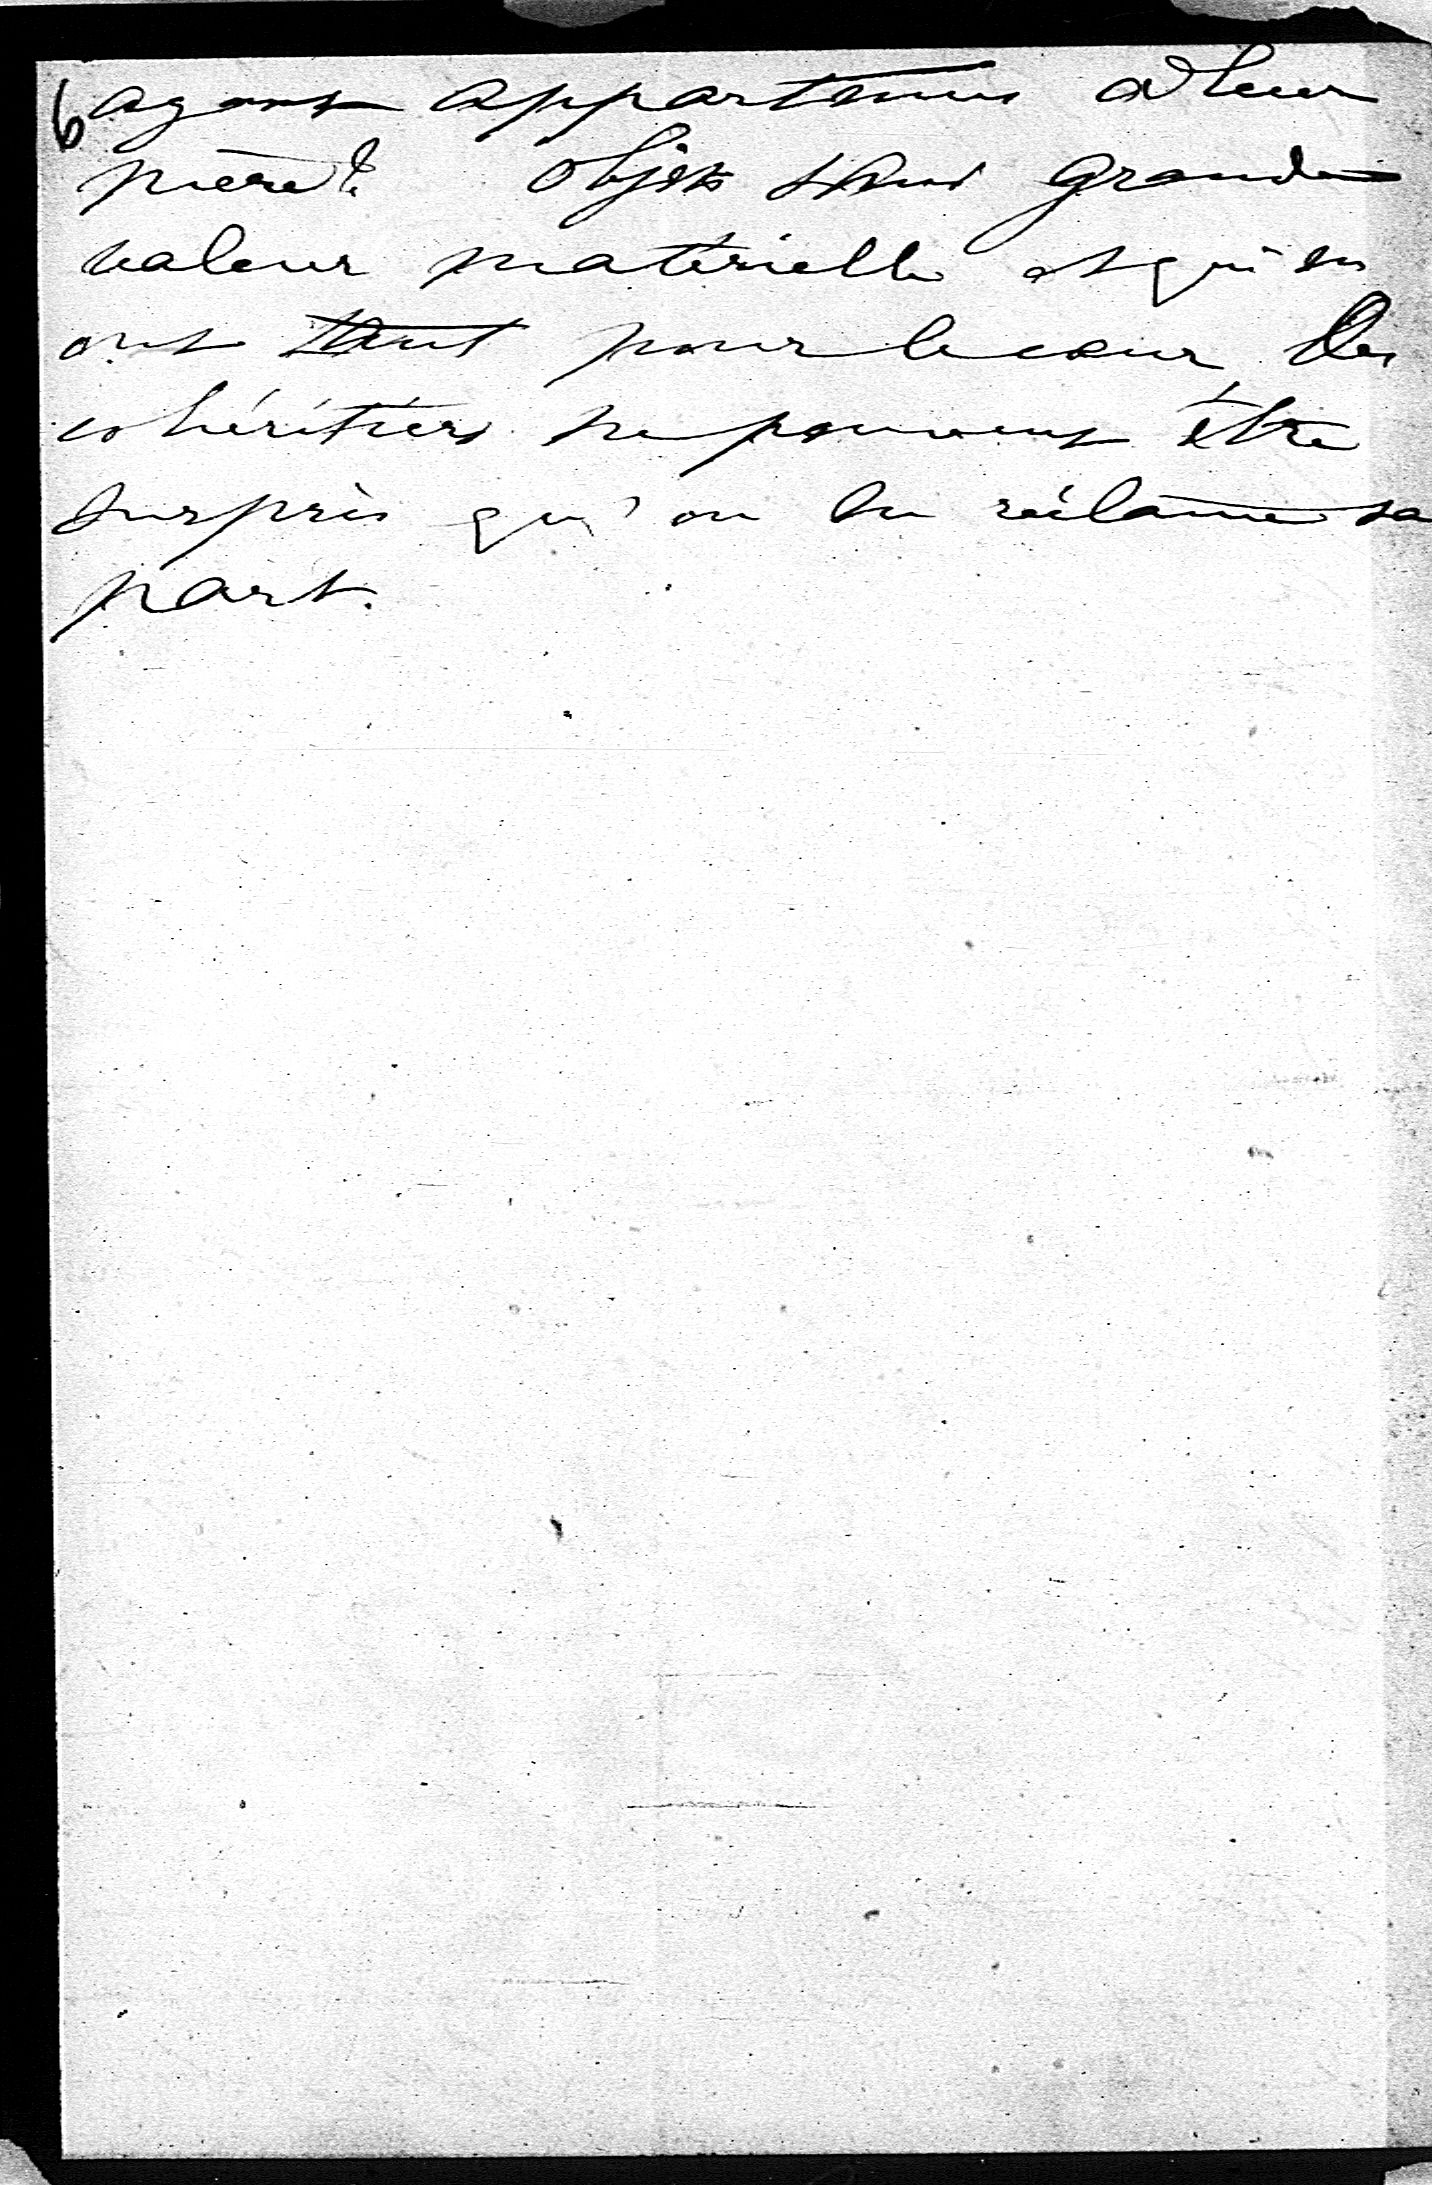 6 ayant appartenus à leur
mère? objets sans grande
valeur matérielle et qui en
ont tant pour le cœur les
cohéritiers ne peuvent être
surpris qu'on en réclame sa
part.